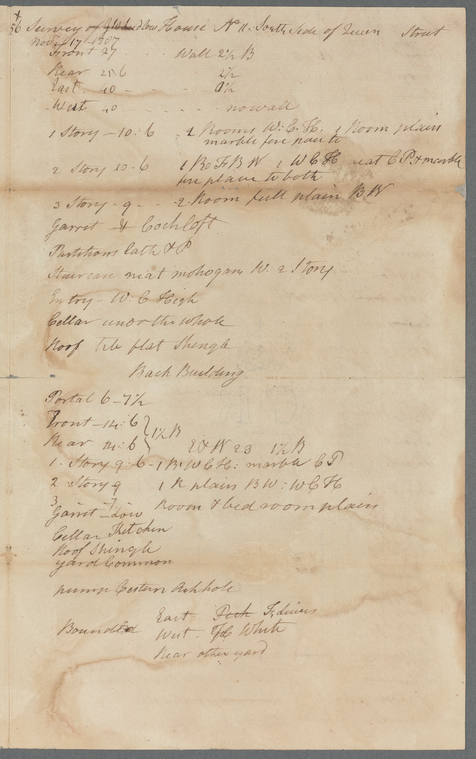 56 Survey of House No 11. South Side of Queen Street
Nov 17 1807
Front 27 Wall 2½ B
Rear 25 6 2½
East 40 - - - - 0½
West 40 - - - - no wall
1 Story - 10. 6 - 2 Rooms W. C. H. 1 Room plain
marble fire place to
2 Story 10. 6 1 R F B W 1 W C H neat C P. & marble
fire place to both
3 Story - 9 - - - 2 Room full plain B W
Garret & Cockloft
Partitions lath & P
Staircase neat mohogany W. 2 Story
Entry - W. C High
Cellar under the whole
Roof Tile flat Shingle
Back Building
Portal 6 - 7½
Front - 14: 6 } 1½ B
Rear 14: 6 E & W 23 1½ B
1. Story 9: 6 - 1 R. W C H: marble C P
2 Story 9 1 R plain B W: W C H
3 - 7 Room & bed room plain
Garret - Low
Cellar Kitchen
Roof Shingle
Yard Common
pump Cestern Ashhole
Bounded East
West White
Rear other yard